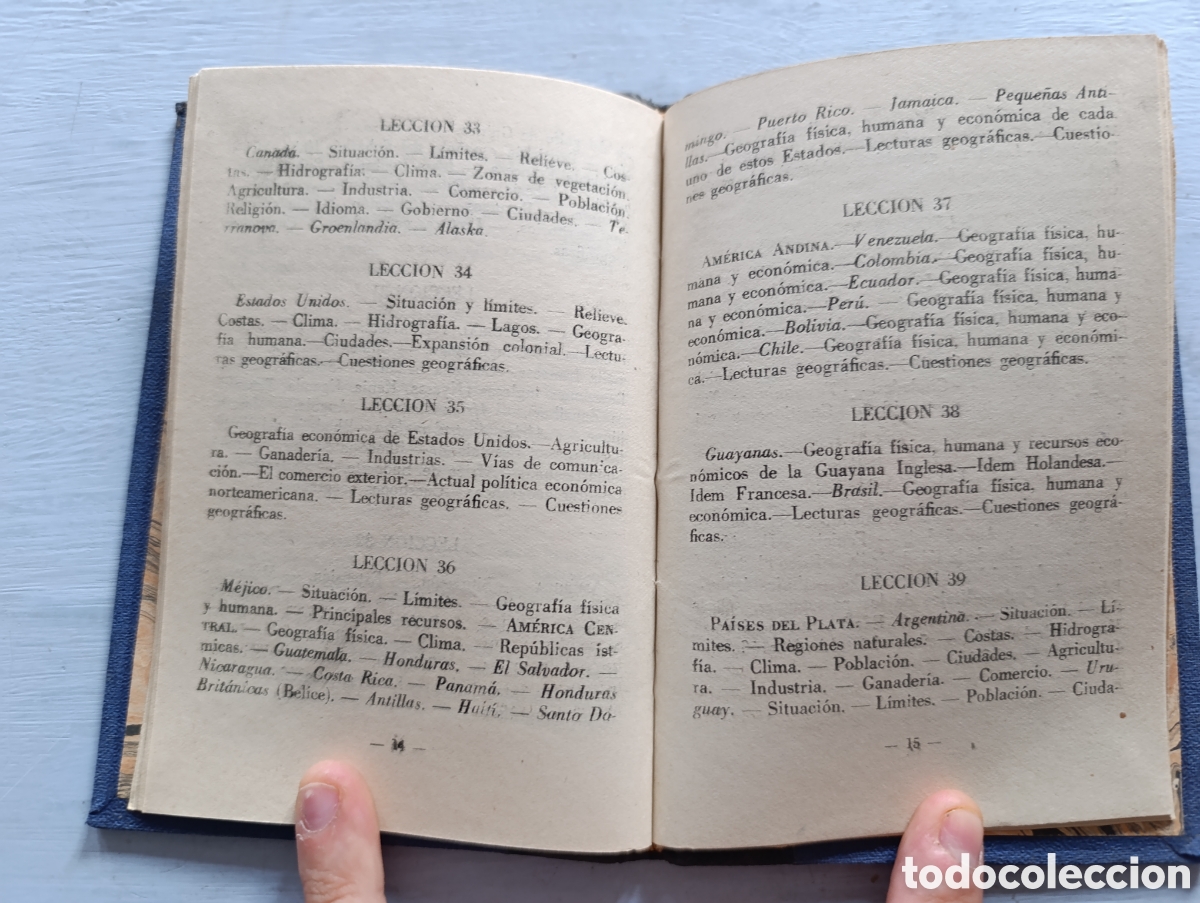 LECCION 33
Canadá. — Situación. — Límites. — Relieve. — Cos-
tas. — Hidrografía: — Clima. — Zonas de vegetación.
Agricultura. — Industria. — Comercio. — Población.
Religión. — Idioma. — Gobierno. — Ciudades. — Te-
rranova. — Groenlandia. — Alaska.
LECCION 34
Estados Unidos. — Situación y límites. — Relieve.
Costas. — Clima. — Hidrografía. — Lagos. — Geogra-
fía humana. —Ciudades.—Expansión colonial.—Lectu-
ras geográficas.—Cuestiones geográficas.
LECCION 35
Geografía económica de Estados Unidos. —Agricultu-
ra. — Ganadería. — Industrias. — Vías de comunica-
ción.—El comercio exterior.—Actual política económica
norteamericana. — Lecturas geográficas. — Cuestiones
geográficas.
LECCION 36
Méjico. — Situación. — Límites. — Geografía física
y humana. — Principales recursos. — AMÉRICA CEN-
TRAL. — Geografía física. — Clima. — Repúblicas íst-
micas. — Guatemala. — Honduras. — El Salvador. —
Nicaragua. — Costa Rica. — Panamá. — Honduras
Británicas (Belice). — Antillas. — Haití. — Santo Do-
— 14 —
mingo. — Puerto Rico. — Jamaica. — Pequeñas Anti-
llas.—Geografía física, humana y económica de cada
uno de estos Estados.—Lecturas geográficas.—Cuestio-
nes geográficas.
LECCION 37
AMÉRICA ANDINA.—Venezuela.—Geografía física, hu-
mana y económica.—Colombia.—Geografía física, hu-
mana y económica.—Ecuador.—Geografía física, huma-
na y económica.—Perú. — Geografía física, humana y
económica.—Bolivia.—Geografía física, humana y eco-
nómica.—Chile.—Geografía física, humana y económi-
ca.—Lecturas geográficas.—Cuestiones geográficas.
LECCION 38
Guayanas.—Geografía física, humana y recursos eco-
nómicos de la Guayana Inglesa.—Idem Holandesa.—
Idem Francesa.—Brasil.—Geografía física, humana y
económica.—Lecturas geográficas.—Cuestiones geográ-
ficas.
LECCION 39
PAÍSES DEL PLATA. — Argentina. — Situación. — Lí-
mites. — Regiones naturales. — Costas. — Hidrogra-
fía. — Clima. — Población. — Ciudades. — Agricultu-
ra. — Industria. — Ganadería. — Comercio. — Uru-
guay. — Situación. — Límites. — Población. — Ciuda-
— 15 —
todocoleccion